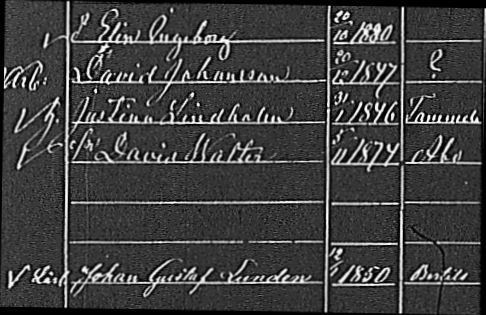 Elin Ingeborg 20/10 1880
Arb: David Johansson 20/12 1847 ?
h. Justina Lindholm 31/1 1846 Tammela
David Walter 5/11 1874 Åbo
Johan Gustaf Lunden 12/1 1850